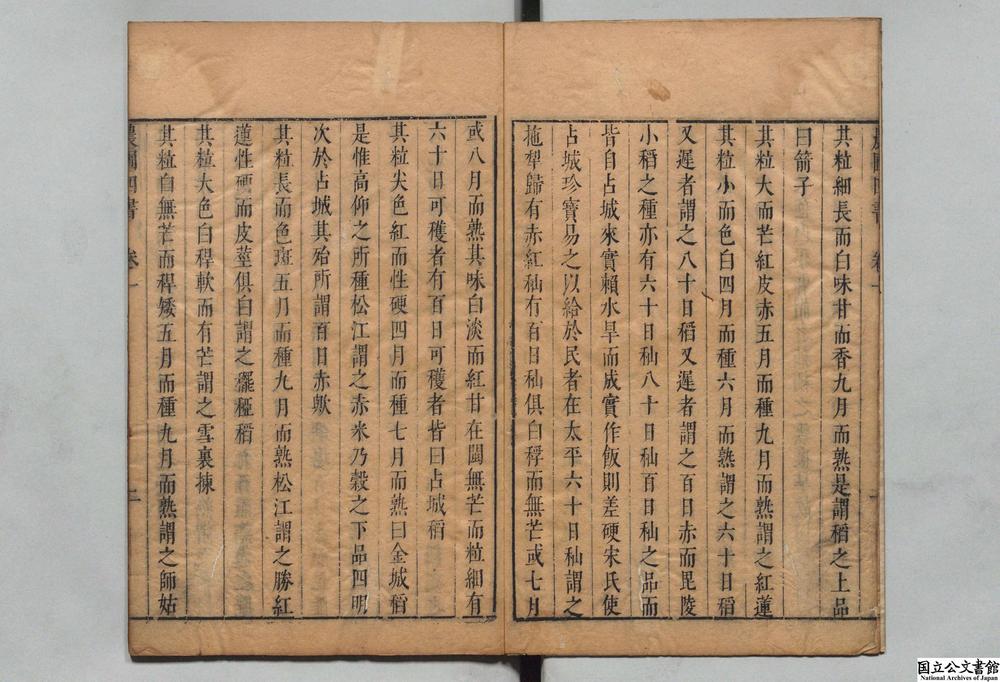 其粒細長而白味甘而香九月而熟是謂稻之上品
曰箭子
其粒大而芒紅皮赤五月而種九月而熟謂之紅蓮
其粒小而色白四月而種六月而熟謂之六十日稻
又遲者謂之八十日稻又遲者謂之百日赤而毘陵
小稻之種亦有六十日秈八十日秈百日秈之品而
皆自占城來實賴水旱而成實作飯則差硬宋氏使
占城珍寶易之以給於民者在太平六十日秈謂之
拖犁歸有赤紅秈有百日秈俱白稃而無芒或七月
或八月而熟其味白淡而紅甘在閩無芒而粒細有
六十日可穫者有百日可穫者皆曰占城稻
其粒尖色紅而性硬四月而種七月而熟曰金城稻
是惟高仰之所種松江謂之赤米乃穀之下品四明
次於占城其殆所謂百日赤歟
其粒長而色斑五月而種九月而熟松江謂之勝紅
蓮性硬而皮莖俱白謂之䆉稏稻
其粒大色白稈軟而有芒謂之雪裏揀
其粒自無芒而稈矮五月而種九月而熟謂之師姑
農圃四書 卷一 二
国立公文書館
National Archives of Japan